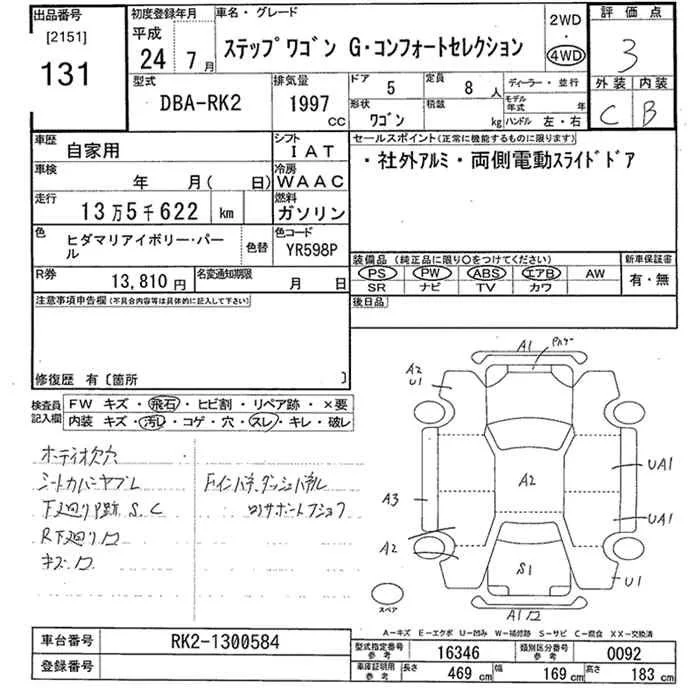 出品番号
[2151]
131
初度登録年月
平成
24年 7月
車名・グレード
ステップワゴン G・コンフォートセレクション
2WD
・
4WD
評価点
3
型式
DBA-RK2
排気量
1997
CC
ドア
5
定員
8人
ディーラー・並行
形状
ワゴン
積載
kg
モデル年式
年
ハンドル 左・右
外装 内装
C B
車歴
自家用
シフト
IAT
車検
年 月( 日)
冷房
WAAC
走行
13万5千622 km
燃料
ガソリン
色
ヒダマリアイボリー・パール
色替
色コード
YR598P
R券
13,810円
名変通知期限
月 日
セールスポイント(正常に機能するものに限ります)
・社外アルミ・両側電動スライドドア
装備品(純正品に限り○をつけてください)
PS PW ABS エアB AW
SR ナビ TV カワ
新車保証書
有・無
後日品
注意事項申告欄(不具合内容等は具体的に記入して下さい)
修復歴 有〔箇所 〕
検査員記入欄
FW キズ・飛石・ヒビ割・リペア跡・×要
内装 キズ・汚レ・コゲ・穴・スレ・キレ・破レ
シートカバーヤブレ
下廻りP跡 S.C
R下廻り凹
キズ凹
A1
A2
U1
A2
UA1
A3
UA1
A2
S1
U1
A1凹
スペア
A-キズ E-エクボ U-凹み W-補修跡 S-サビ C-腐食 XX-交換済
車台番号
RK2-1300584
登録番号
型式指定番号 参考
16346
類別区分番号 参考
0092
車庫証明用 参考
長さ 469 cm
幅 169 cm
高さ 183 cm